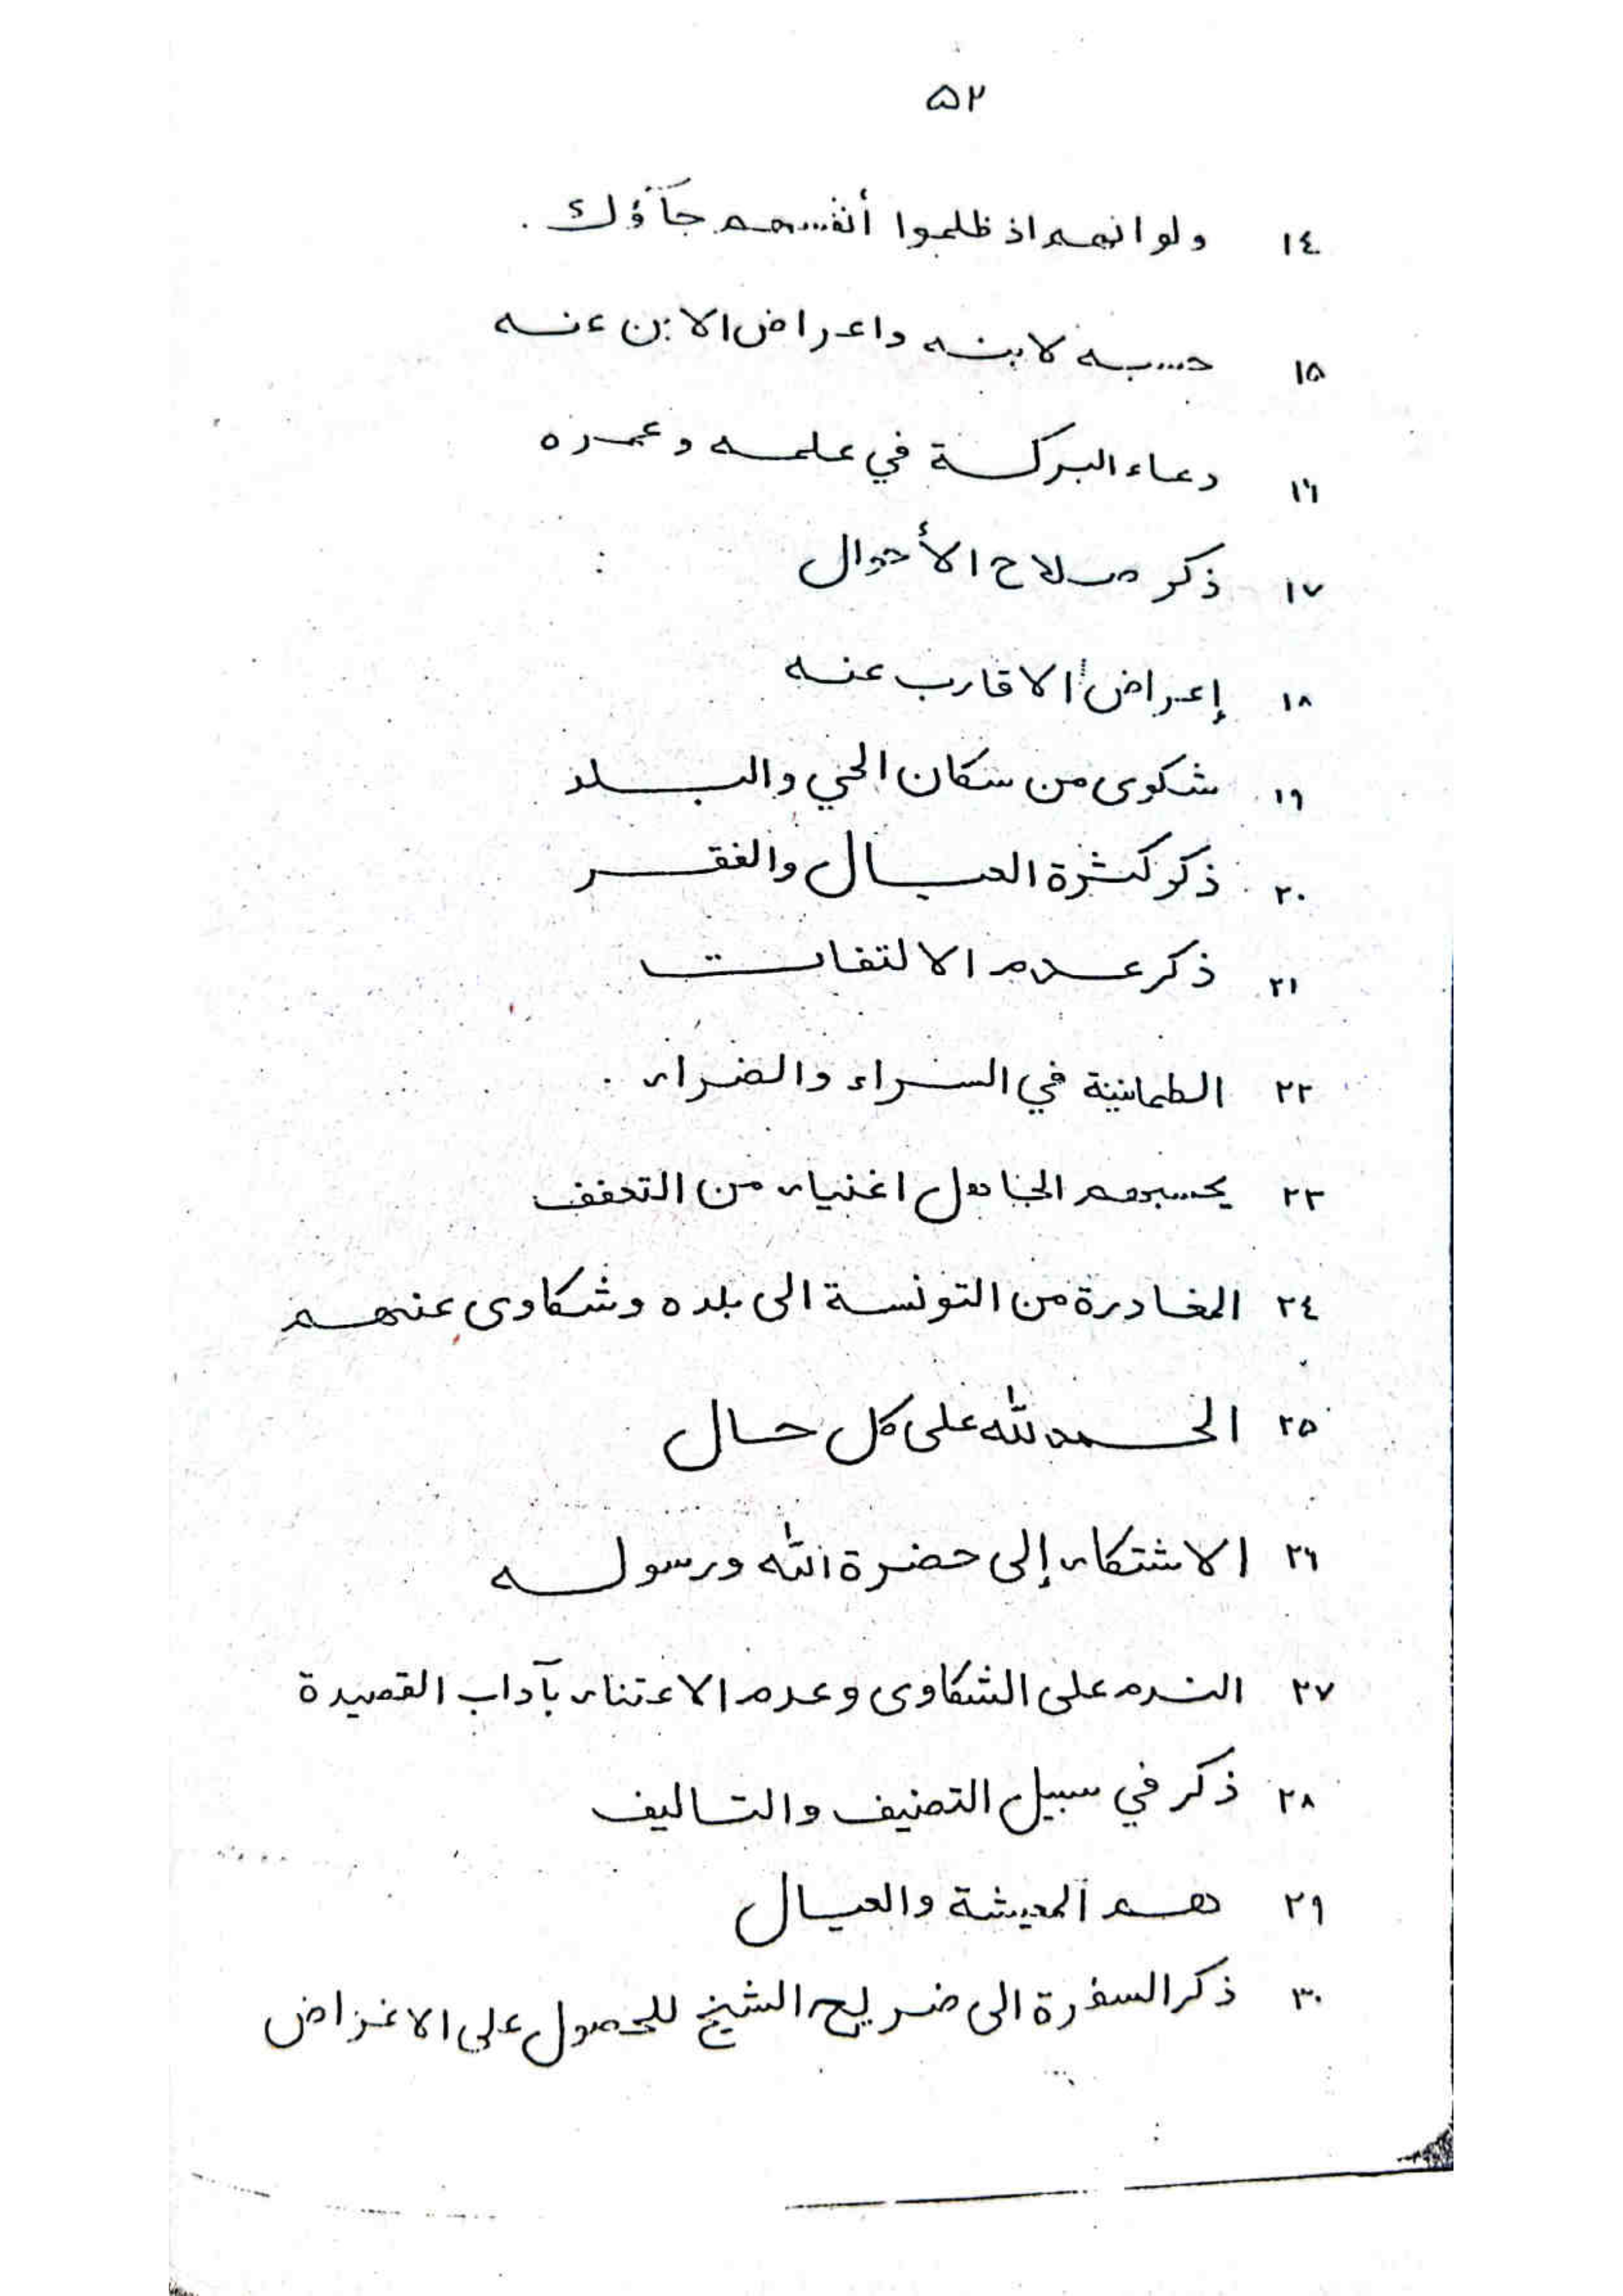 ٥٢
١٤ ولو انهم اذ ظلموا أنفسهم جآؤك .
١٥ حسبه لابنه واعراض الابن عنه
١٦ دعاء البركة في علمه وعمره
١٧ ذكر صلاح الأحوال
١٨ إعراض الاقارب عنه
١٩ شكوى من سكان الحي والبلد
٢٠ ذكر كثرة العيال والفقر
٢١ ذكر عدم الالتفات
٢٢ الطمانينة في السراء والضراء .
٢٣ يحسبهم الجاهل اغنياء من التعفف
٢٤ المغادرة من التونسة الى بلده وشكاوى عنهم
٢٥ الحمد لله على كل حال
٢٦ الاشتكاء إلى حضرة الله ورسوله
٢٧ الندم على الشكاوى وعدم الاعتناء بآداب القصيدة
٢٨ ذكر في سبيل التصنيف والتاليف
٢٩ هم المعيشة والعيال
٣٠ ذكر السفرة الى ضريح الشيخ للحصول على الاغراض